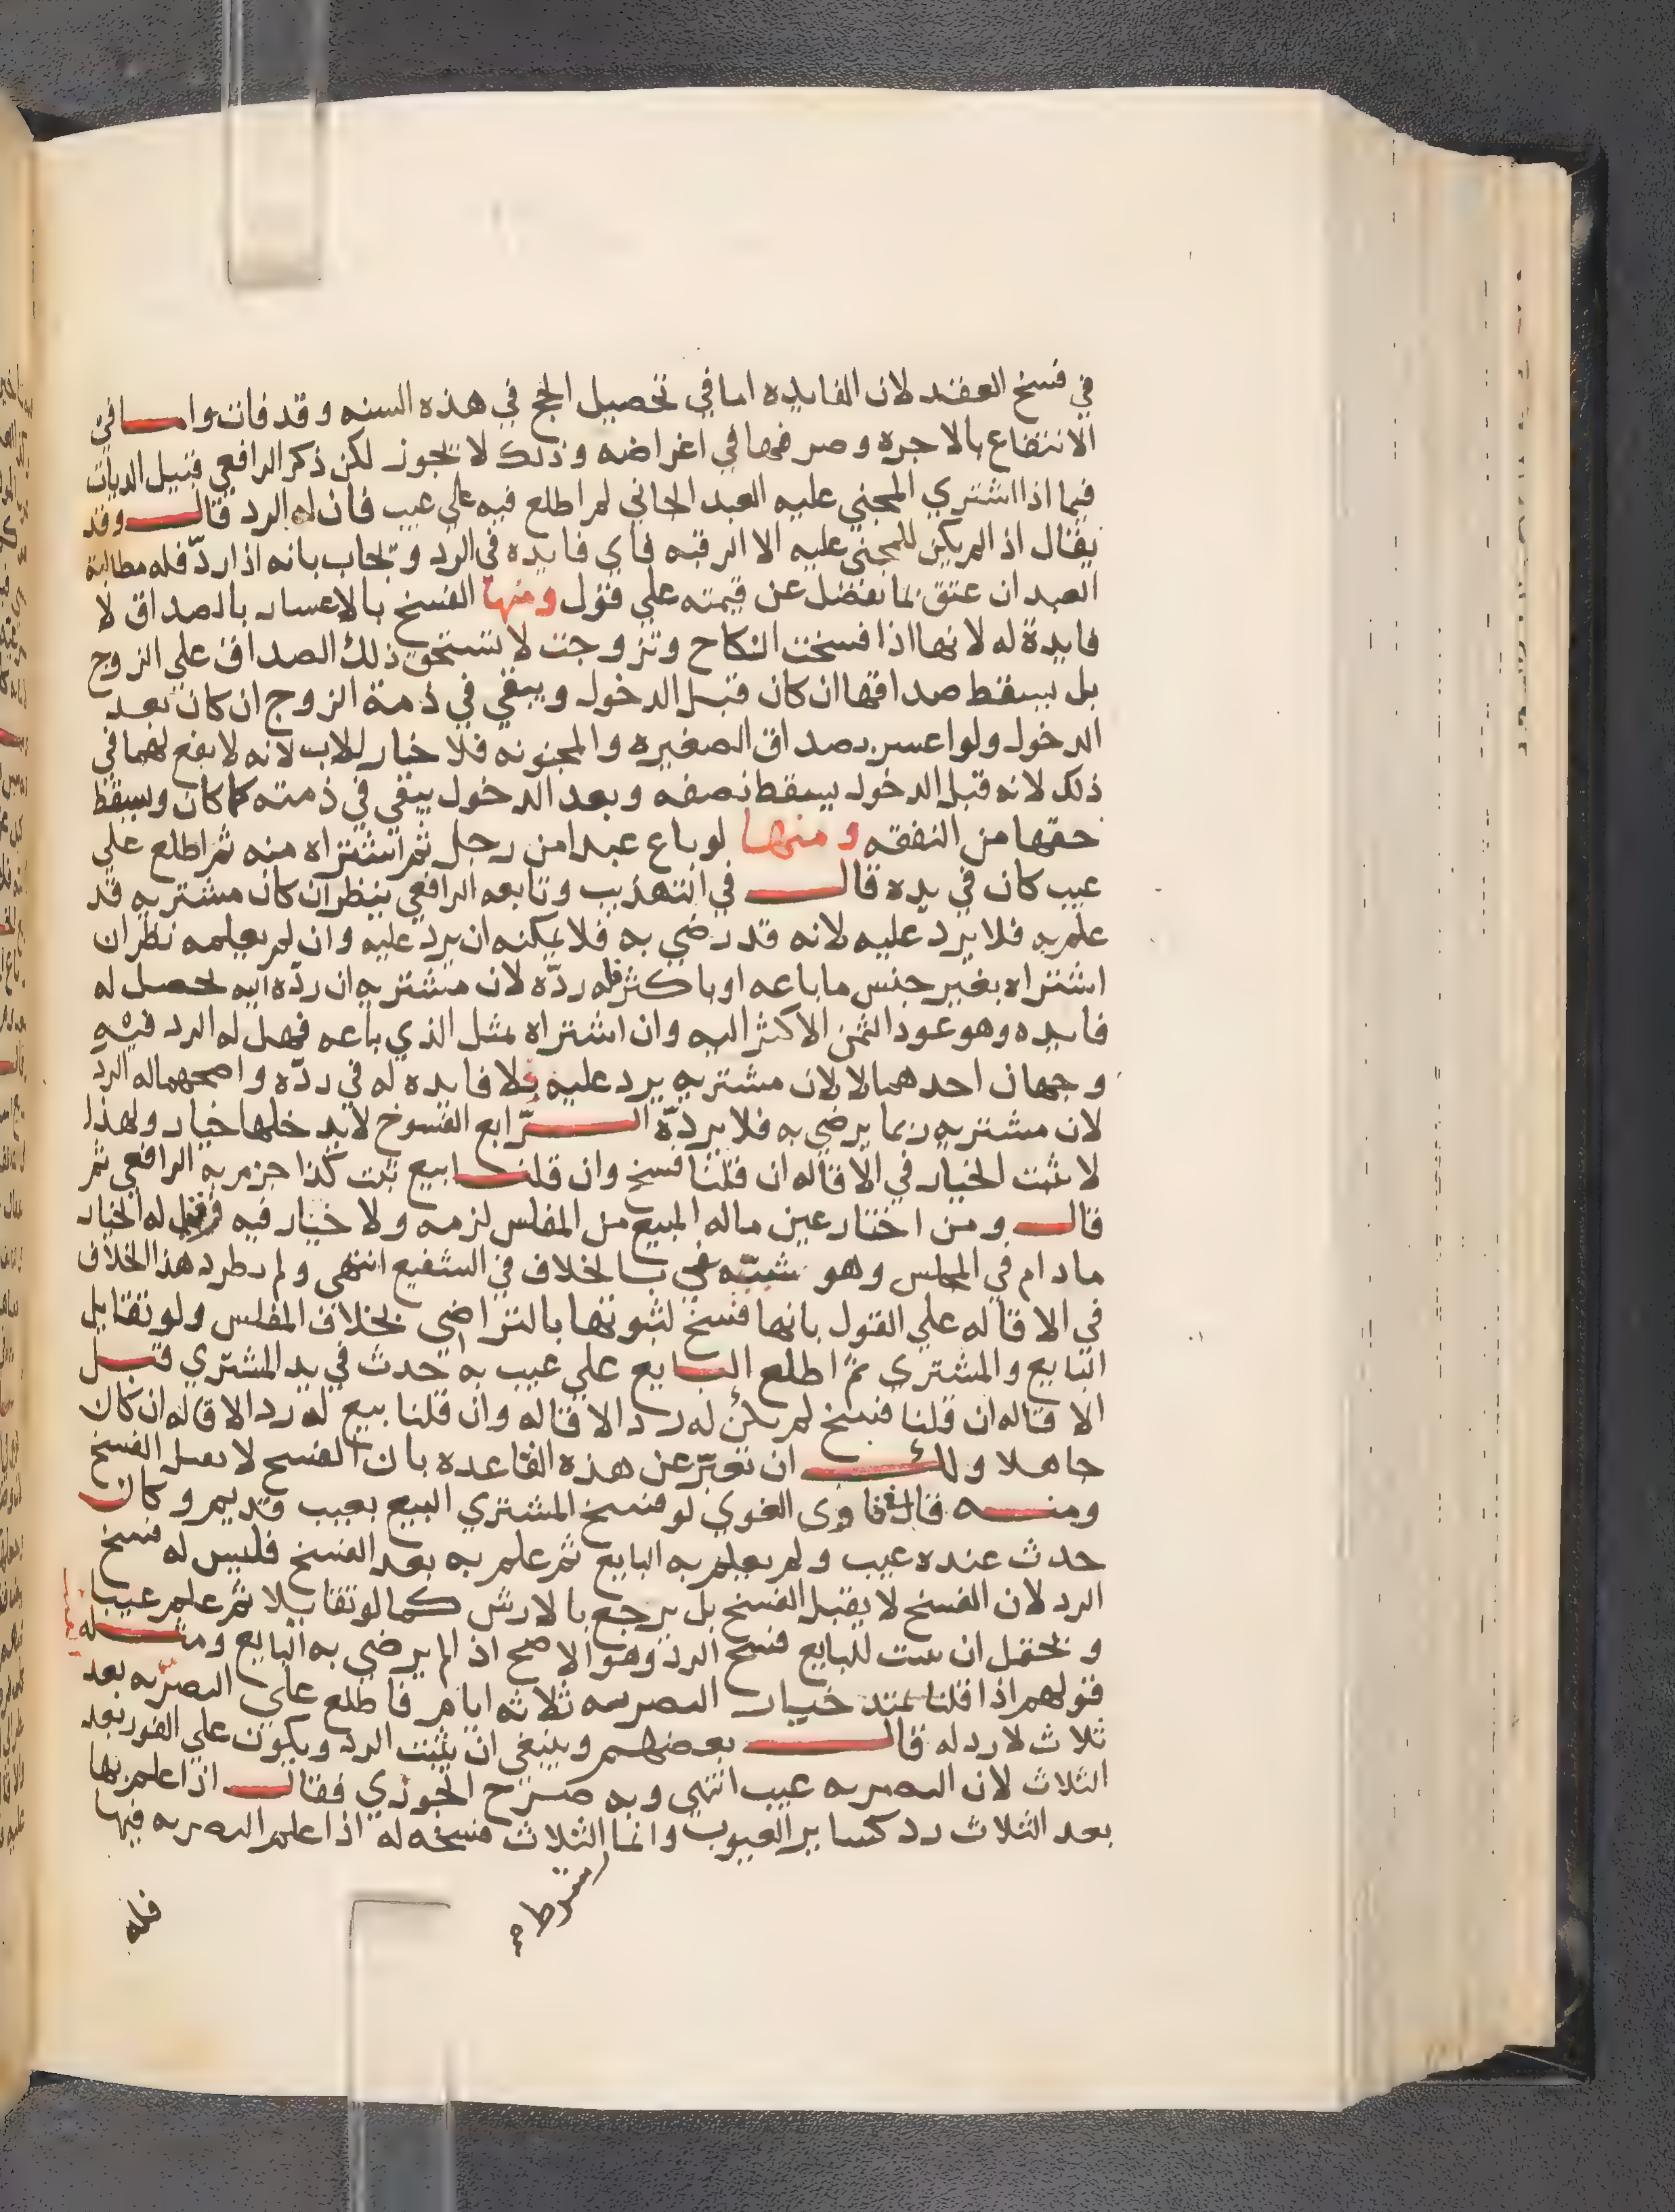 في فسخ العقد لان الفايده اما في تحصيل الحج في هذه السنه وقد فات واما في
الانتفاع بالاجره وصرفها في اغراضه وذلك لا يجوز لكن ذكر الرافعي قبيل الديات
فيما اذا اشتري المجني عليه العبد الجاني ثم اطلع فيه علي عيب فان له الرد قال وقد
يقال اذا لم يكن للمجني عليه الا الرقبه فاي فايده في الرد ويجاب بانه اذا ردّ فله مطالبة
العبد ان عتق بما يفضل عن قيمته علي قول ومنها الفسخ بالاعسار بالصداق لا
فايدة له لانها اذا فسخت النكاح وتزوجت لا تستحق ذلك الصداق علي الزوج
بل يسقط صداقها ان كان قبل الدخول ويبقي في ذمة الزوج ان كان بعد
الدخول ولو اعسر بصداق الصغيره والمجنونه فلا خيار للاب لانه لا نفع لهما في
ذلك لانه قبل الدخول يسقط نصفه وبعد الدخول يبقي في ذمته كما كان ويسقط
حقها من النفقه ومنها لو باع عبدا من رجل ثم اشتراه منه ثم اطلع علي
عيب كان في يده قال في التهذيب وتابعه الرافعي ينظر ان كان مشتريه قد
علم به فلا يرد عليه لانه قد رضي به فلا يمكنه ان يرد عليه وان لم يعلمه نظر ان
اشتراه بغير جنس ما باعه او باكثر فله ردّه لان مشتريه ان ردّه اليه يحصل له
فايده وهو عود الثمن الاكثر اليه وان اشتراه بمثل الذي باعه فهل له الرد فيه
وجهان احدهما لا لان مشتريه يرد عليه فلا فايده له في ردّه واصحهما له الرد
لان مشتريه ربما يرضي به فلا يردّه الرّابع الفسوخ لا يدخلها خيار ولهذا
لا يثبت الخيار في الاقاله ان قلنا فسخ وان قلنا بيع ثبت كذا جزم به الرافعي ثم
قال ومن اختار عين ماله المبيع من المفلس لزمه ولا خيار فيه وقيل له الخيار
مادام في المجلس وهو شبيه بالخلاف في الشفيع انتهي ولم يطرد هذا الخلاف
في الاقاله علي القول بانها فسخ لثبوتها بالتراضي بخلاف المفلس ولو تقايل
البايع والمشتري ثم اطلع البايع علي عيب به حدث في يد المشتري قبل
الاقاله ان قلنا فسخ لم يكن له رد الاقاله وان قلنا بيع له رد الاقاله ان كان
جاهلا ولك ان تعبّر عن هذه القاعده بان الفسخ لا يقبل الفسخ
ومنه قال في فتاوي البغوي لو فسخ المشتري البيع بعيب قديم وكان
حدث عنده عيب ولم يعلم به البايع ثم علم به بعد الفسخ فليس له فسخ
الرد لان الفسخ لا يقبل الفسخ بل يرجع بالارش كما لو تقايلا ثم علم عيبا
ويحتمل ان يثبت للبايع فسخ الرد وهو الاصح اذا لم يرضي به البايع ومثله
قولهم اذا قلنا يمتد خيار التصريه ثلاثه ايام فاطلع علي التصريه بعد
ثلاث لا رد له قال بعضهم وينبغي ان يثبت الرد ويكون علي الفور بعد
الثلاث لان التصريه عيب انتهي وبه صرح الجوري فقال اذا علم بها
بعد الثلاث رد كساير العيوب وانما الثلاث فسخه له اذا علم التصريه فيها
فله